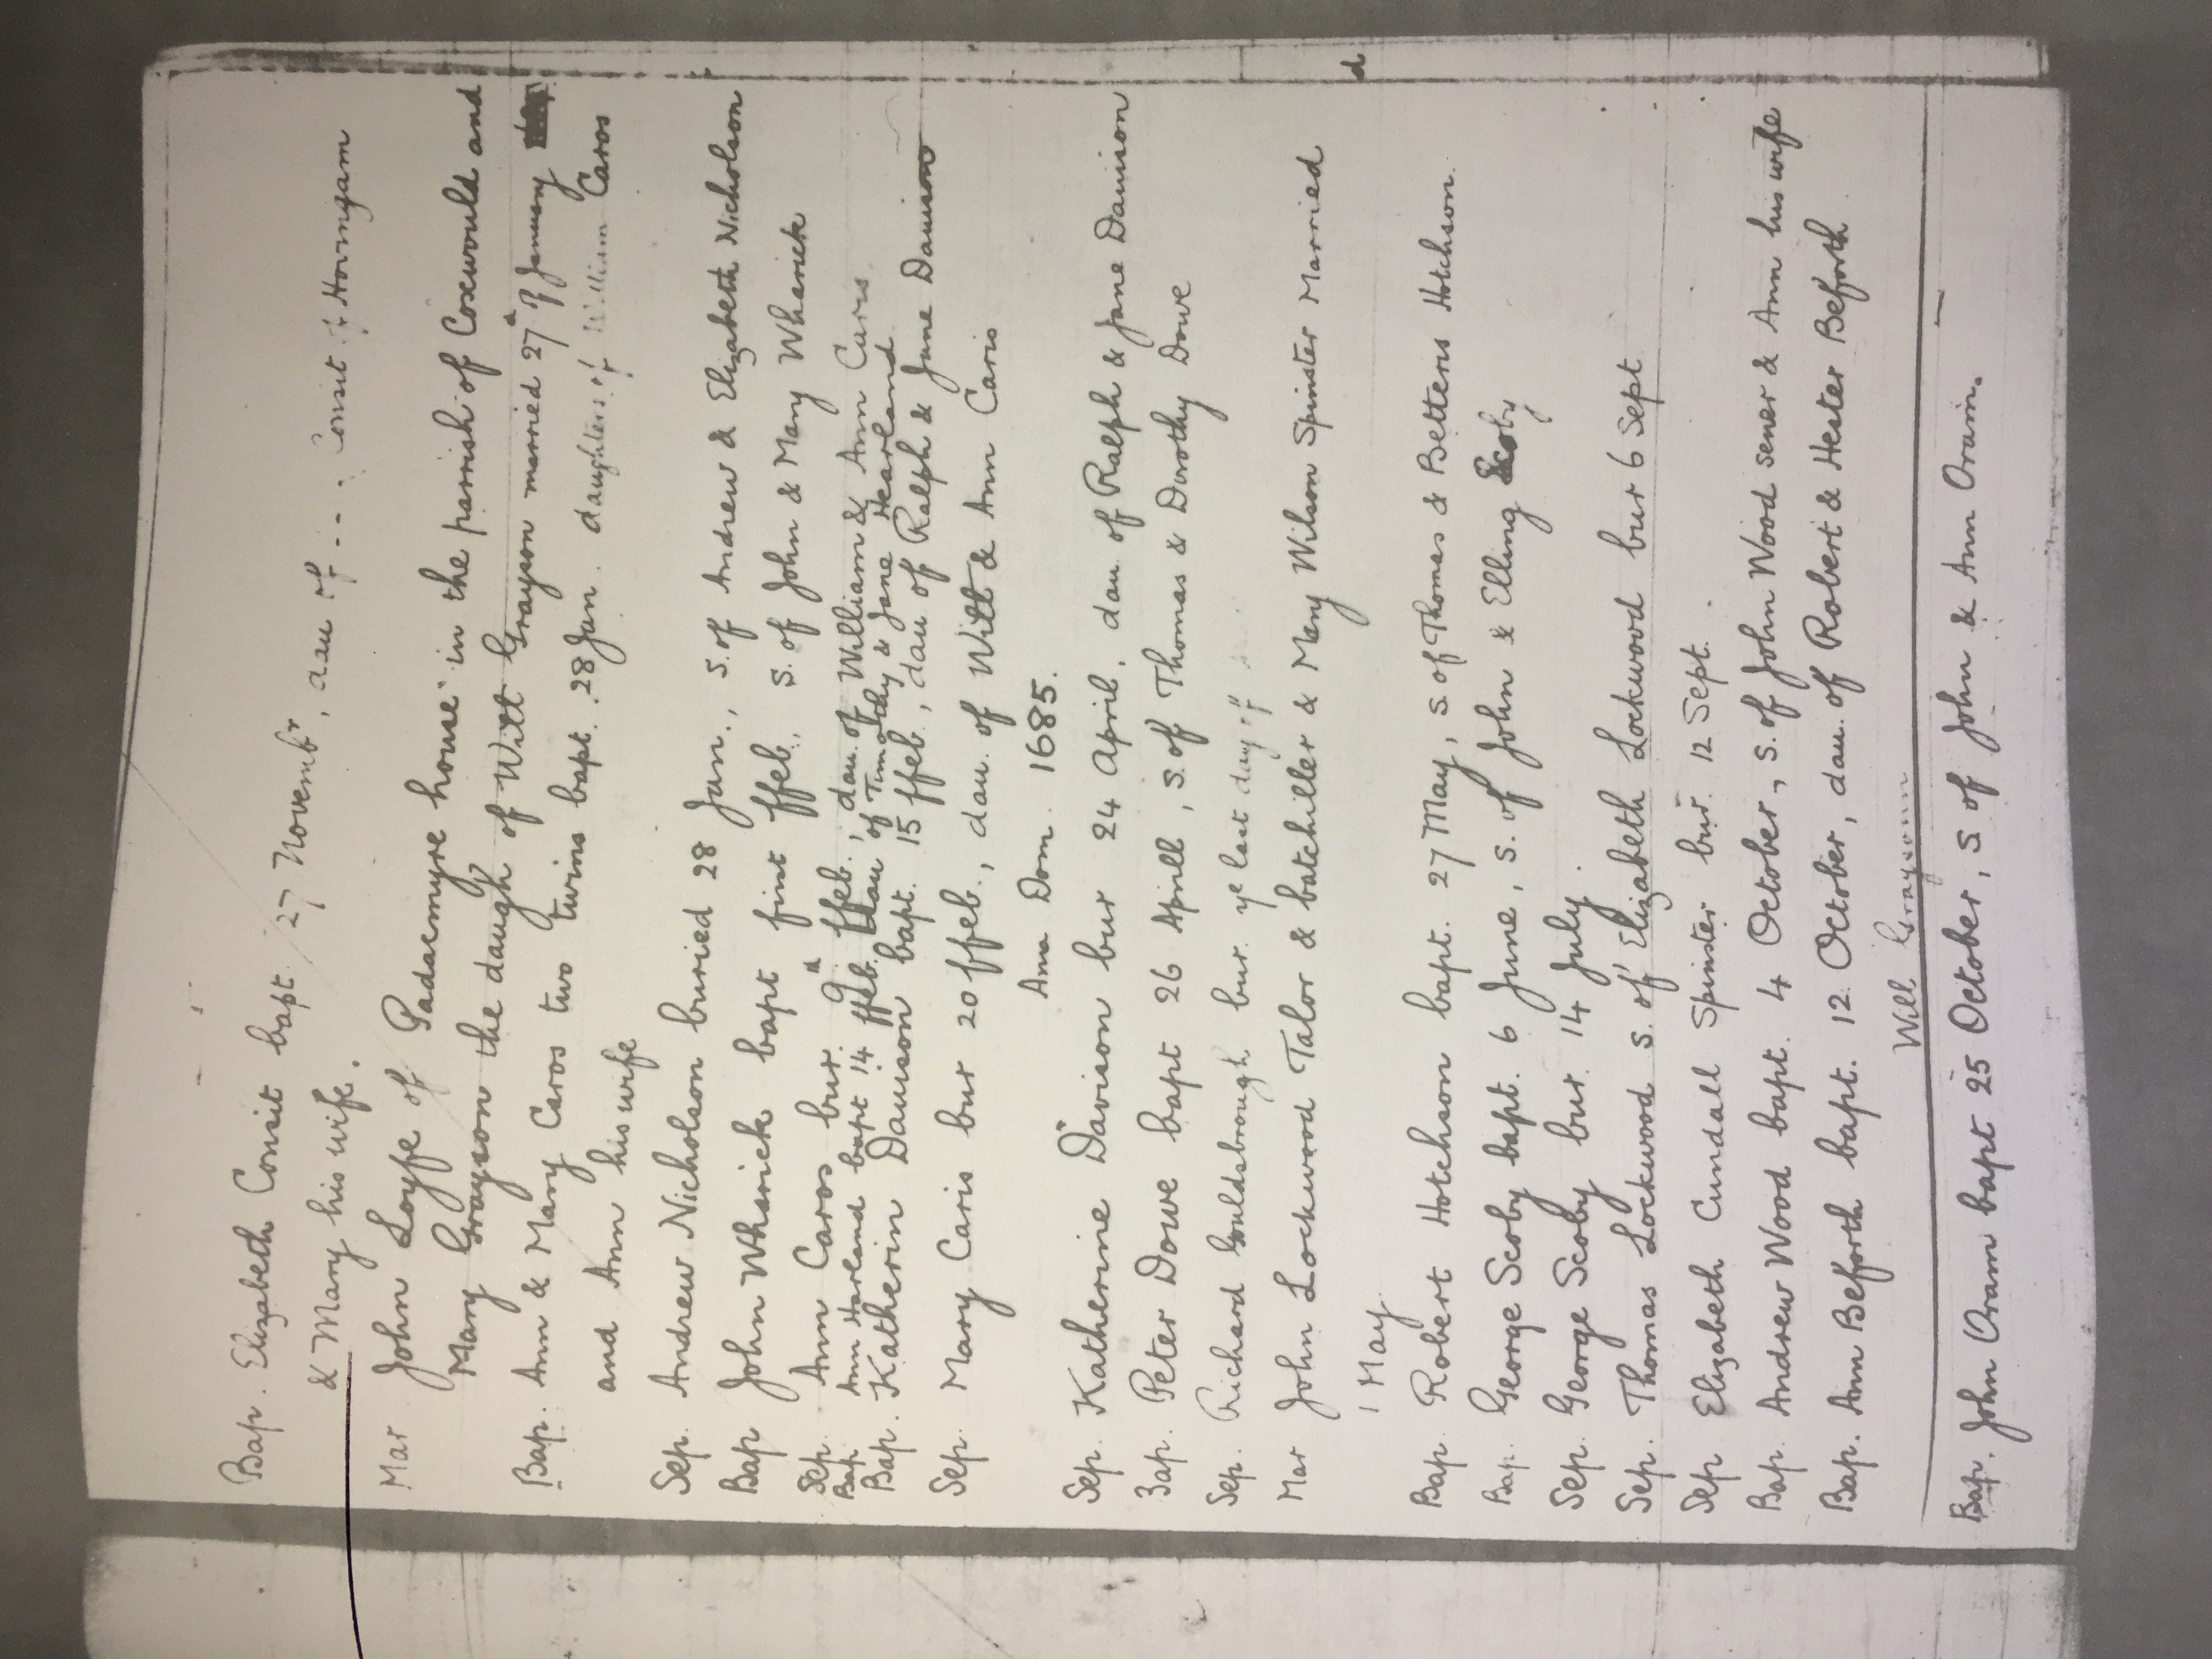 Bap. Elizabeth Consit bapt. 27 Novemb^r, dau of --- Consit of Hovingam
& Mary his wife.
Mar John Loyfe of Padaemyre house" in the parrish of Coxewould and
Mary Grayson the daugh of Witt Grayson married 27^d of January
Bap. Ann & Mary Caros two twins bapt. 28 Jan. daughters of William Caros
and Ann his wife
Sep. Andrew Nicholson buried 28 Jan., s. of Andrew & Elizabeth Nicholson
Bap John Wharick bapt first ffeb., s. of John & Mary Wharick
Sep. Ann Caros bur. 9^d ffeb., dau. of William & Ann Caris
Bap. Ann Harland bapt 14 ffeb. dau of Timothy & Jane Hearland
Bap. Katherin Davison bapt. 15 ffeb., dau of Ralph & Jane Davison
Sep. Mary Caris bur 20 ffeb., dau. of Witt & Ann Caris
Anna Dom. 1685.
Sep. Katherine Davison bur 24 April, dau. of Ralph & Jane Davison
Bap. Peter Dowe bapt 26 Aprill, s. of Thomas & Dorothy Dowe
Sep. Richard Gouldsbrough bur. ye last day of
Mar John Lockwood Talor & batchiller & Mary Wilson Spinster Married
1 May
d
Bap. Robert Hotchson bapt. 27 May, s. of Thomas & Betteris Hotchson.
Bap. George Scoby bapt. 6 June, s. of John & Elling Scoby
Sep. George Scoby bur. 14 July.
Sep. Thomas Lockwood s. of Elizabeth Lockwood bur 6 Sept
Sep Elizabeth Cundall Spinster bur. 12 Sept.
Bap. Andrew Wood bapt. 4 October, s. of John Wood sener & Ann his wife
Bap. Ann Beforth bapt. 12 October, dau. of Robert & Hester Beforth
Will Graysonn
Bap. John Oram bapt 25 October, s of John & Ann Oram.